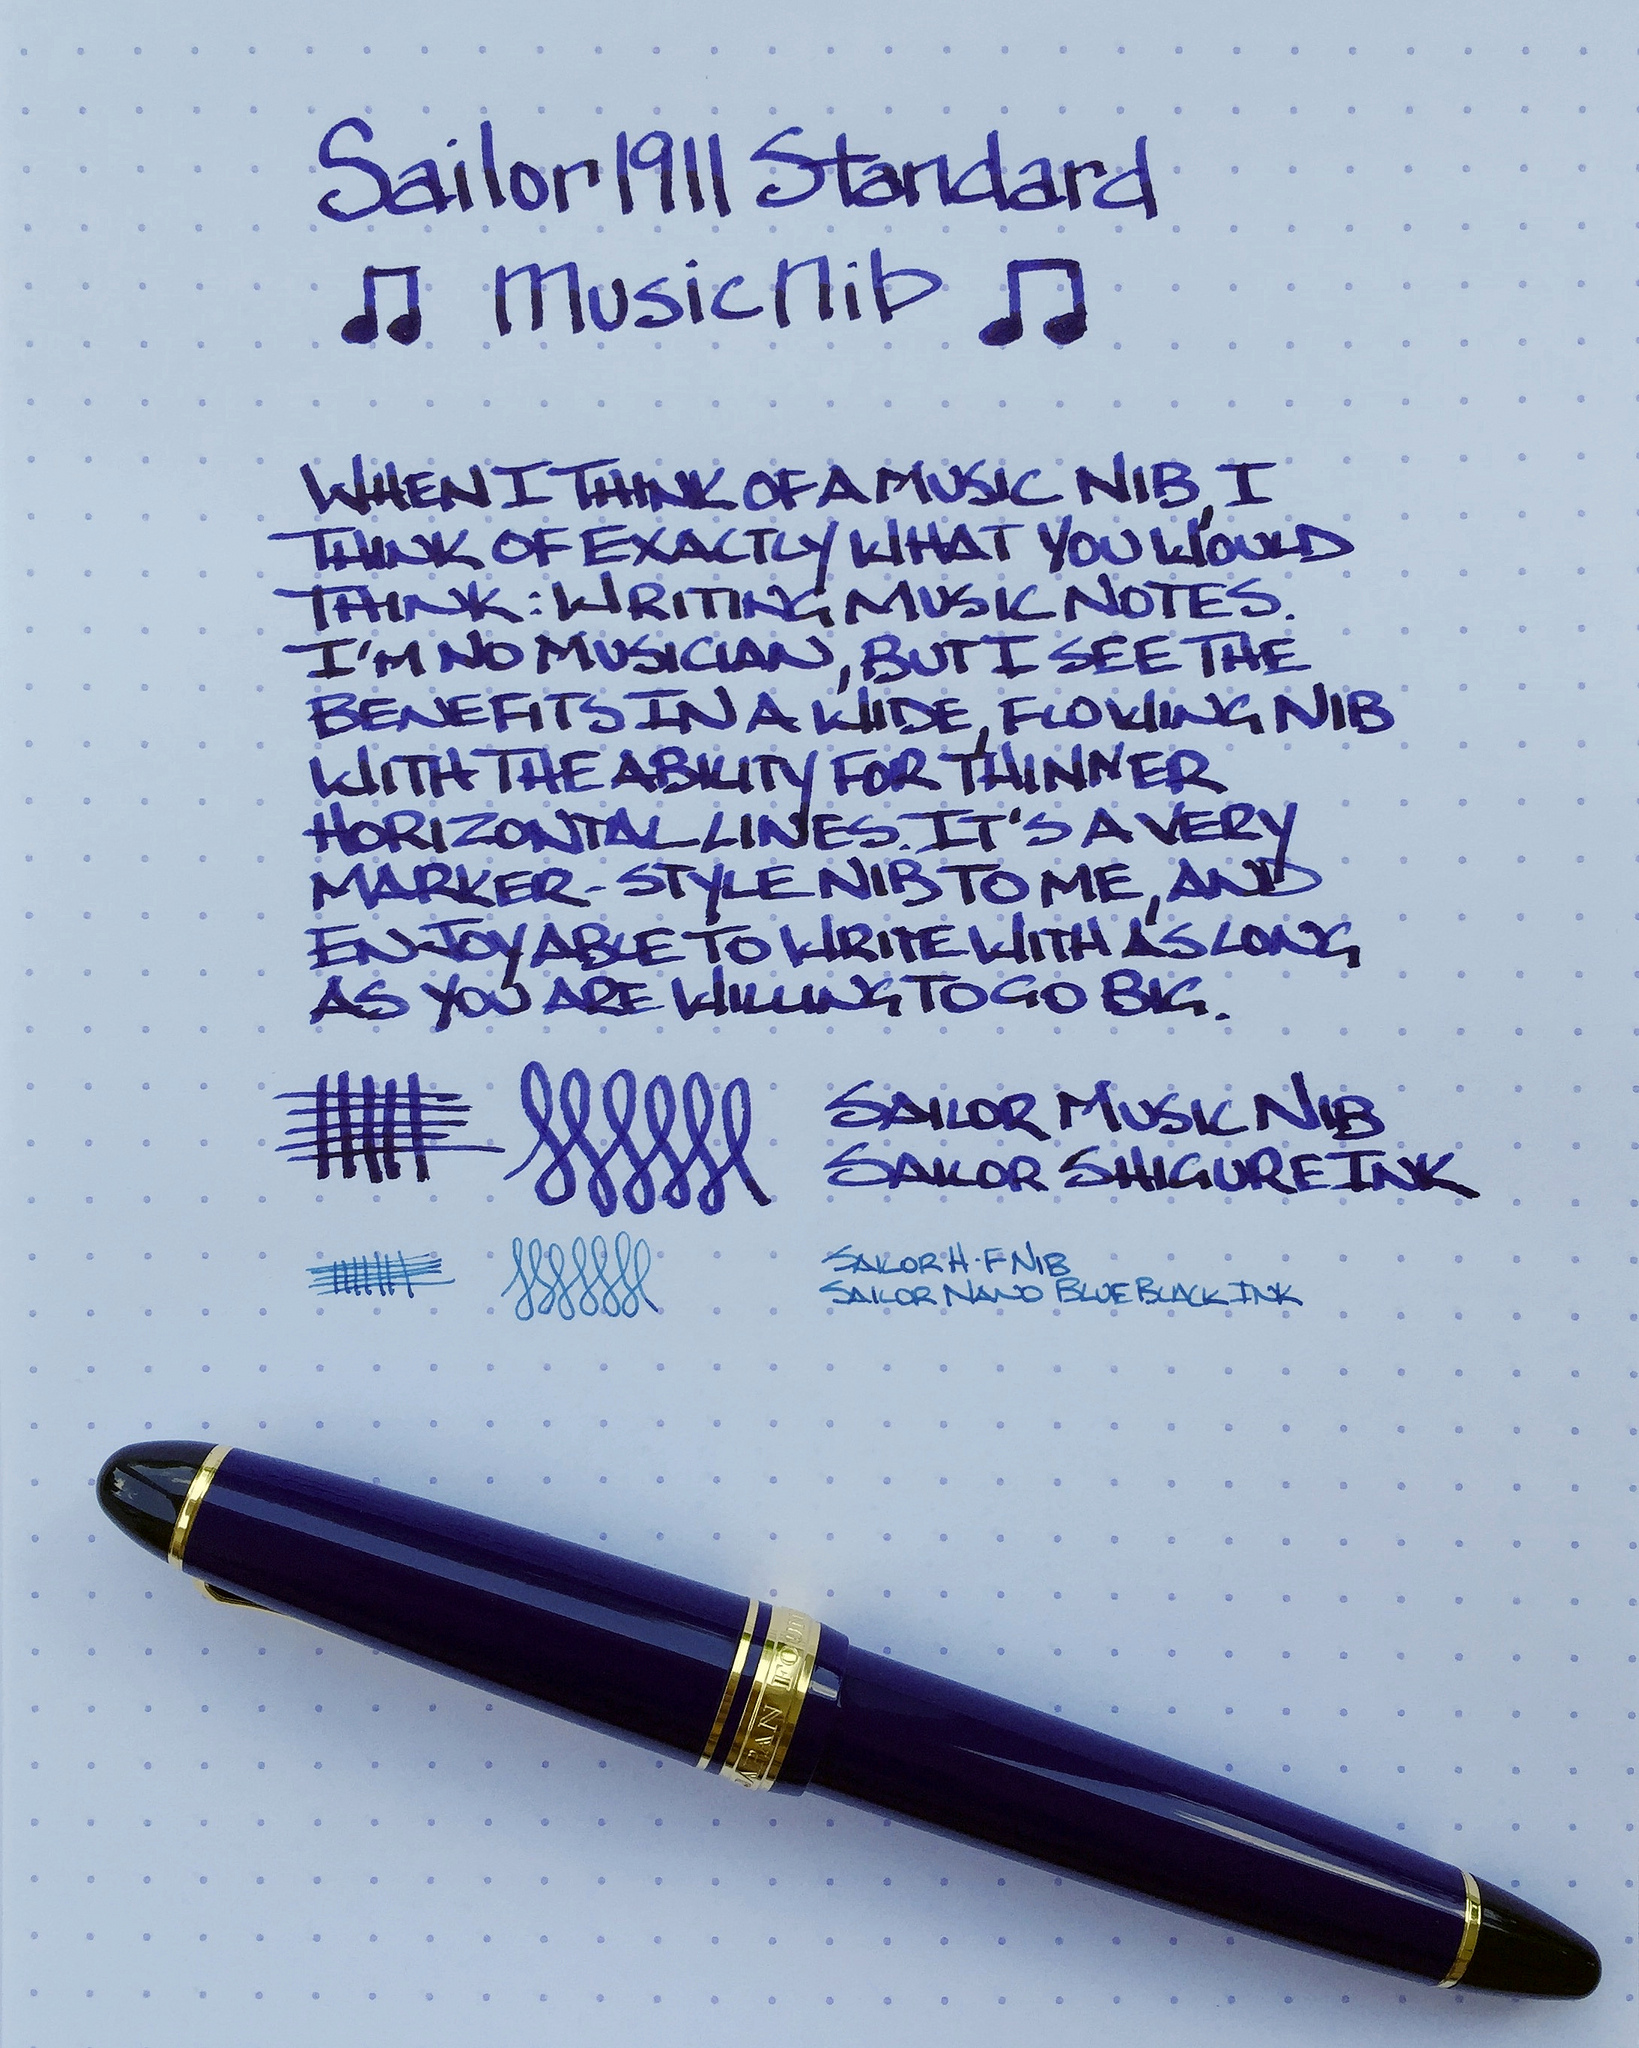 Sailor 1911 Standard
♫ Music Nib ♫
WHEN I THINK OF A MUSIC NIB, I
THINK OF EXACTLY WHAT YOU WOULD
THINK: WRITING MUSIC NOTES.
I'M NO MUSICIAN, BUT I SEE THE
BENEFITS IN A WIDE, FLOWING NIB
WITH THE ABILITY FOR THINNER
HORIZONTAL LINES. IT'S A VERY
MARKER-STYLE NIB TO ME, AND
ENJOYABLE TO WRITE WITH AS LONG
AS YOU ARE WILLING TO GO BIG.
SAILOR MUSIC NIB
SAILOR SHIGURE INK
SAILOR H-F NIB
SAILOR NANO BLUE BLACK INK
JAPAN FOU